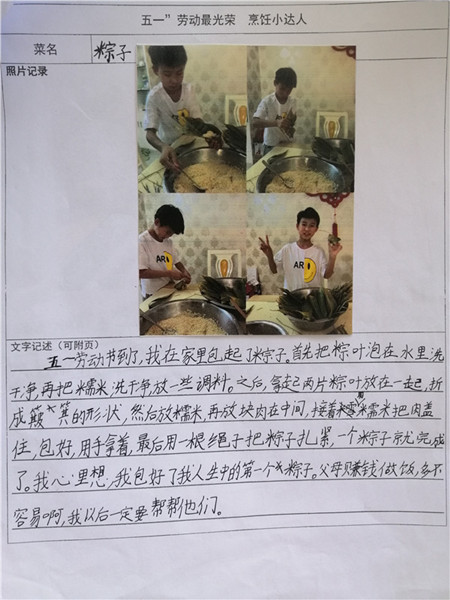 五一”劳动最光荣 烹饪小达人
菜名 粽子
照片记录
AR
AR
文字记述（可附页）
五一劳动节到了,我在家里包起了粽子。首先把粽叶泡在水里洗
干净,再把糯米洗干净放一些调料。之后,拿起两片粽叶放在一起,折
成簸箕的形状,然后放糯米,再放块肉在中间,接着用糯米把肉盖
住,包好,用手拿着,最后用一根绳子把粽子扎紧,一个粽子就完成
了。我心里想,我包好了我人生中的第一个粽子。父母赚钱做饭,多不
容易啊,我以后一定要帮帮他们。